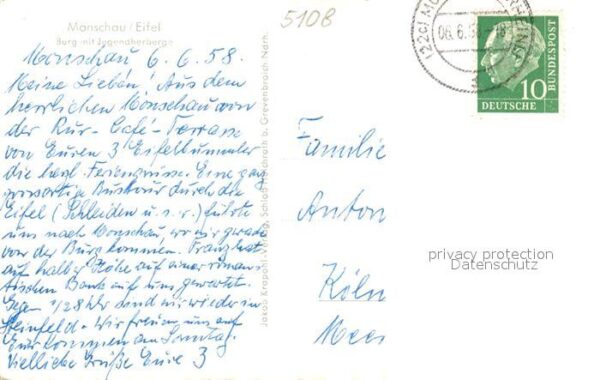 Manschau / Eifel
Burg mit Jugendherberge
5108
Monschau 6.6.58.
Meine Lieben! Aus dem
herrlichen Monschau von
der Rur-Café-Terrasse
von Euren 3 Eifelbummler
die herzl. Feriengrüsse. Eine ganz
grossartige Bustour durch die
Eifel (Schleiden u.s.w.) führte
uns nach Monschau, wo wir gerade
von der Burg kommen. Franz hat
auf halber Höhe auf einer roman-
tischen Bank auf uns gewartet.
Gegen 1/2 8 Uhr sind wir wieder in
Steinfeld. Wir freuen uns auf
Euer kommen am Sonntag.
Vielliebe Grüße Eure 3
Jakob Krapohl-Verlag, Schloss b. Grevenbroich
(22c) 
06.6.58
10
DEUTSCHE BUNDESPOST
Familie
Anton
Köln
privacy protection
Datenschutz